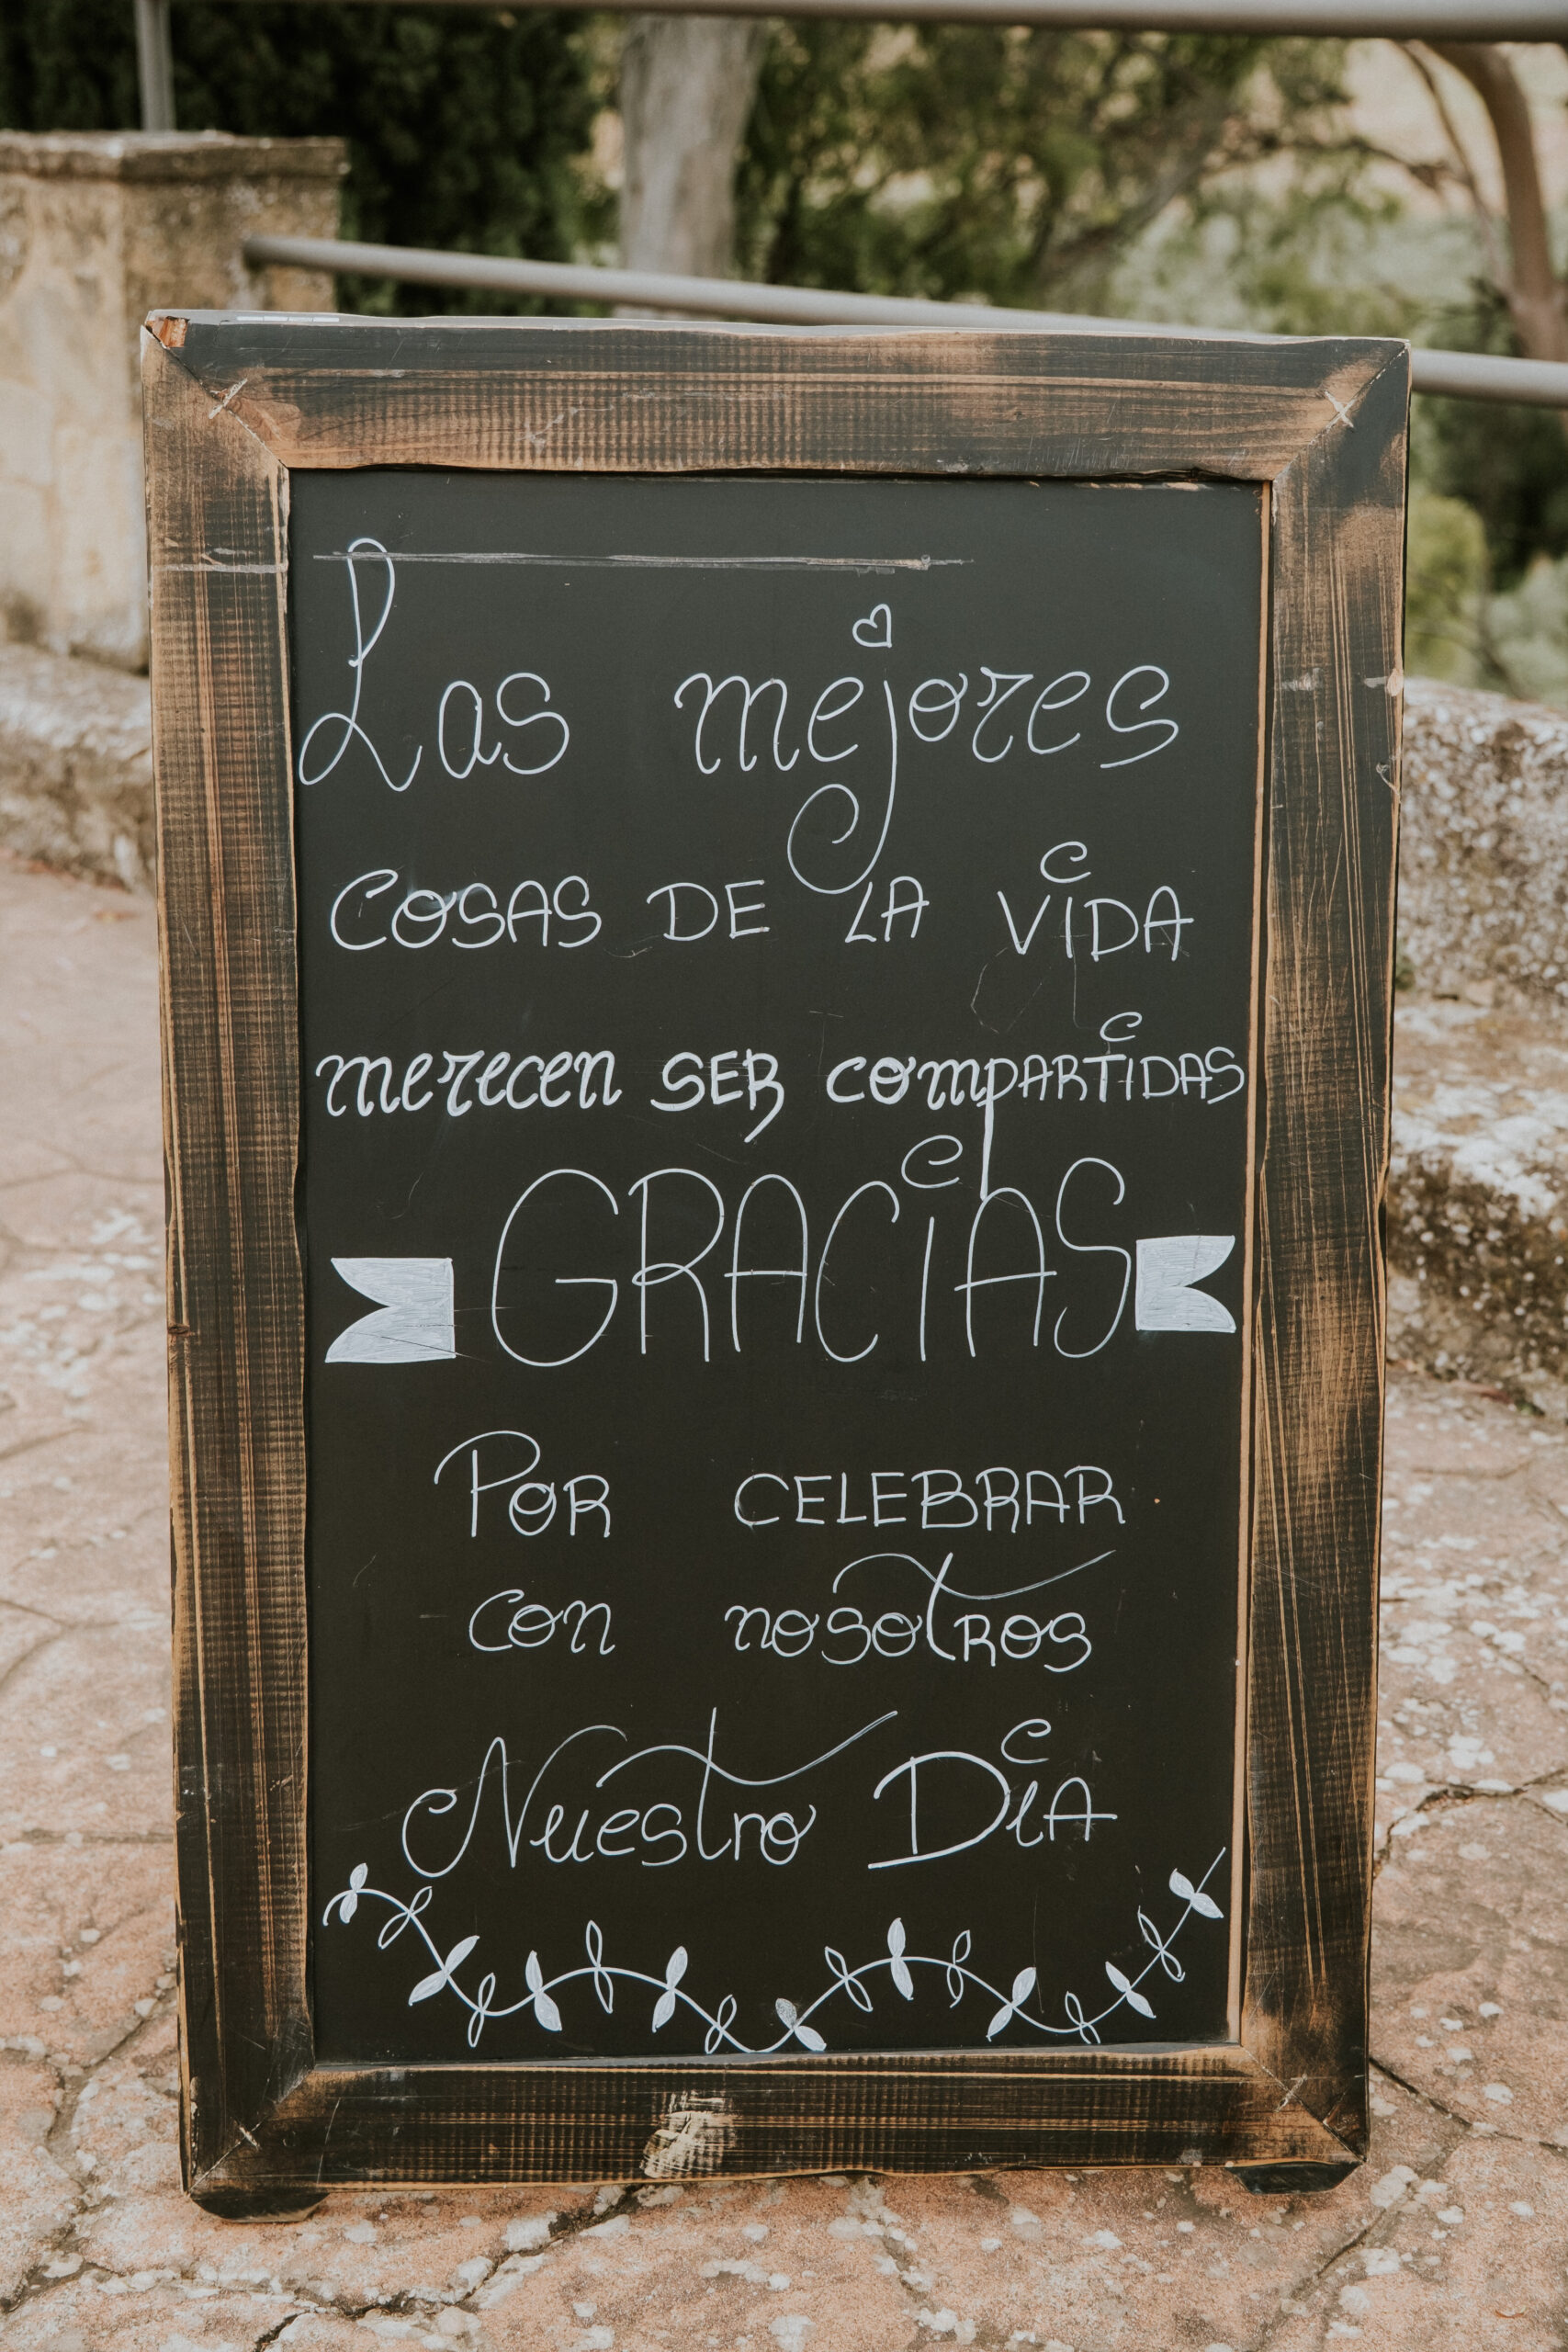 Las mejores
COSAS DE LA VIDA
merecen SER compARTIDAS
GRACIAS
POR CELEBRAR
con nosotROS
Nuestro DiA